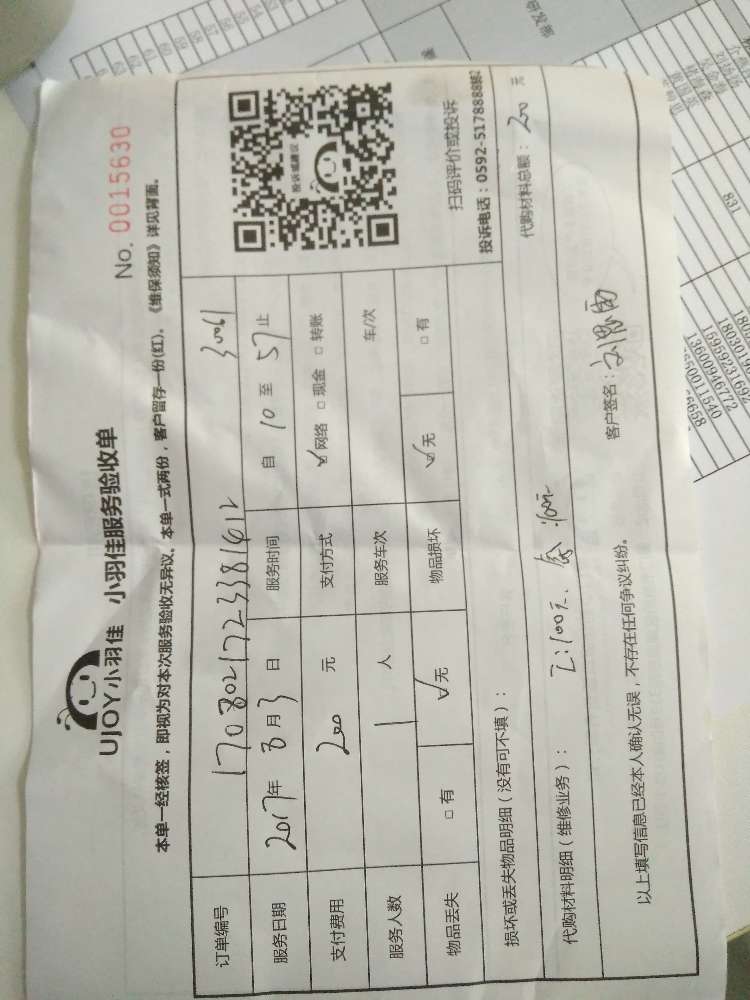 UJOY小羽佳 小羽佳服务验收单
No. 0015630
本单一经核签，即视为对本次服务验收无异议。本单一式两份，客户留存一份(红)。《维保须知》详见背面。
订单编号 1708021723381612 30061
服务日期 2017年 8月3日 服务时间 自 10 至 57 止
支付费用 200 元 支付方式 ☑网络 □现金 □转账
服务人数 1 人 服务车次 车/次
物品丢失 □有 ☑无 物品损坏 ☑无 □有
投诉或建议
扫码评价或投诉
投诉电话：0592-5178888
损坏或丢失物品明细（没有可不填）：
代购材料明细（维修业务）： 100元
代购材料总额：200 元
以上填写信息已经本人确认无误，不存在任何争议纠纷。
客户签名：
831
13600946772